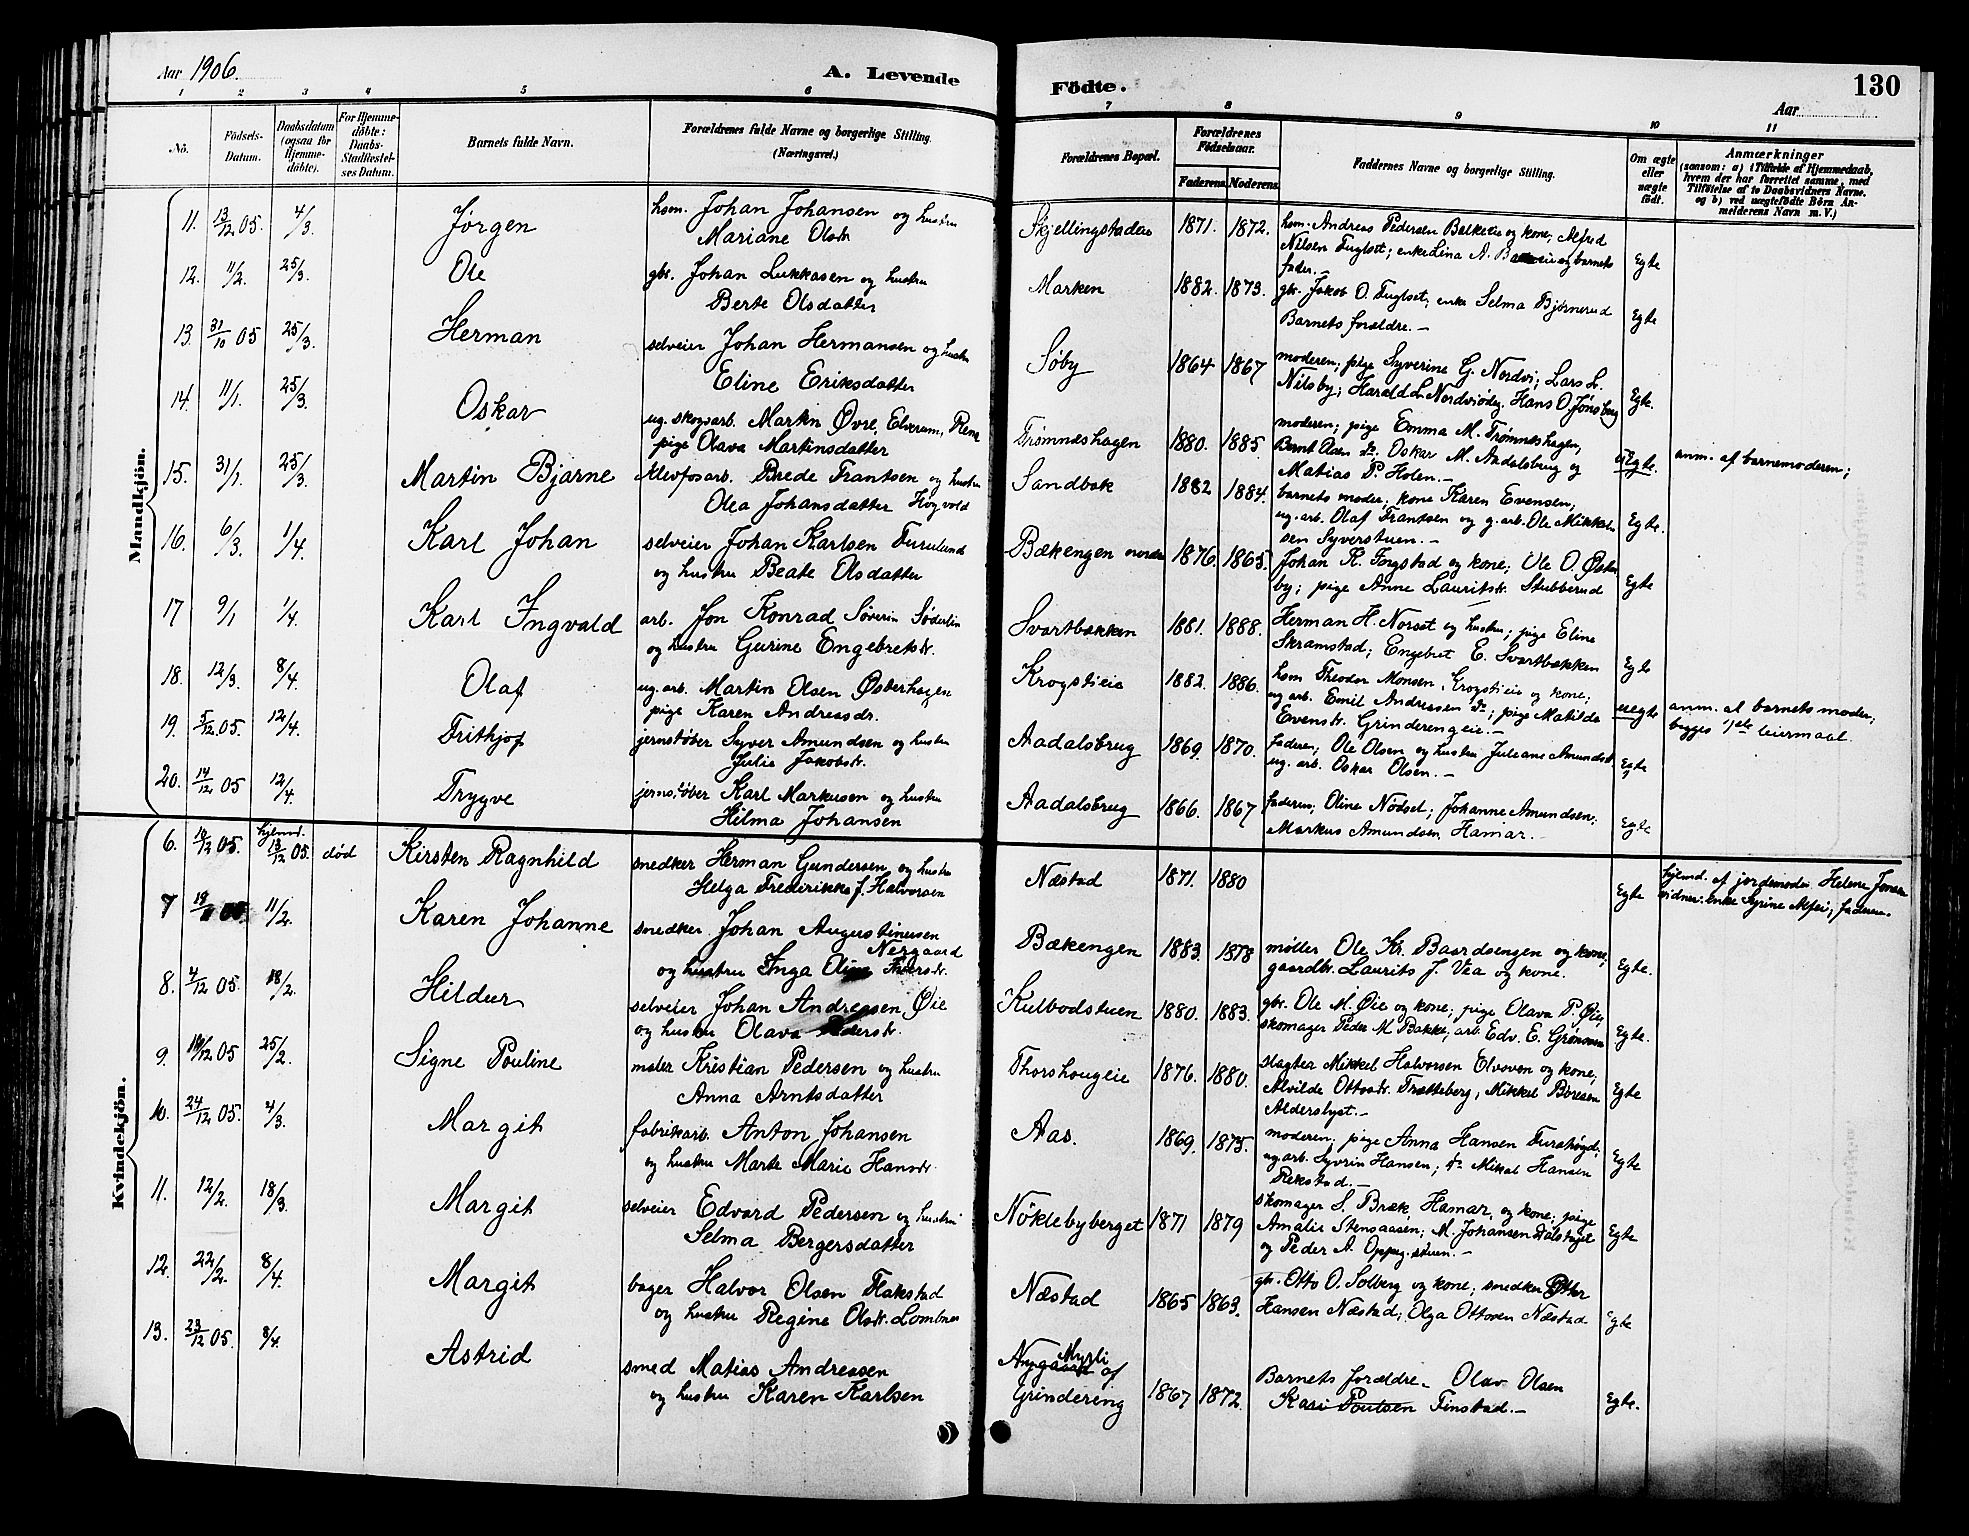 Aar 1906.
A. Levende
Födte.
130
Aar
1 2 3 4 5 6 7 8 9 10 11
No. Födsels-Datum. Daabsdatum (ogsaa for Hjemme-döbte). For Hjemme-döbte: Daabs-Stadfæstel-ses Datum. Barnets fulde Navn. Forældrenes fulde Navne og borgerlige Stilling. (Næringsvei.) Forældrenes Bopæl. Forældrenes Födselsaar. Faderens. Moderens. Faddernes Navne og borgerlige Stilling. Om ægte eller uægte födt. Anmærkninger (saasom: a) i Tilfælde af Hjemmedaab, hvem der har forrettet samme, med Tilföielse af to Daabsvidners Navne. og b) ved uægtefödte Börn An-melderens Navn m. V.)
Mandkjön.
11. 13/12 05. 4/3. Jørgen hsm. Johan Johansen og hustru Skjellingstadeie 1871. 1872. hsm. Andreas Pedersen Balkeeie og kone, Alfred
Mariane Olsdtr. Nilsen Fuglset; enke Lina A. og barnets Egte
fader.-
12. 11/2. 25/3. Ole gbr. Johan Lukkasen og hustru Marken 1882. 1873. gbr. Jakob O. Fuglset; enke Selma Bjørnerud
Berte Olsdatter Barnets forældre.- Egte
13. 31/10 05 25/3. Herman selveier Johan Hermansen og hustru Søby 1864 1867 moderen; pige Syverine G. Nordvi; Lars L.
Eline Eriksdatter Nilsby; Harald L. Nordviødeg. Hans O. Jønsberg Egte.
14. 11/1. 25/3. Oskar ug. skogsarb. Martin Øvre, Elverum, Rena Trømneshagen 1880. 1885. moderen; pige Emma M. Trømneshagen,
pige Olava Martinsdatter Bernt Olsen do. Oskar M. Aadalsbrug og uegte. anm. af barnemoderen;
Matias P. Holen.-
15. 31/1. 25/3. Martin Bjarne Klevfosarb. Brede Frantsen og hustru Sandbak 1882 1884. barnets moder; kone Karen Evensen,
Olea Johansdatter Høgvold ug. arb. Olaf Frantsen og g. arb. Ole Mikkel- Egte.
sen Syverstuen.-
16. 6/3. 1/4. Karl Johan selveier Johan Karlsen Furulund Bækengen nordre 1876. 1865. Johan K. Ingstad og kone; Ole O. Øster
og hustru Beate Olsdatter by; pige Anne Lauritsdr. Stubberud Egte
17 9/1 1/4. Karl Ingvald arb. Jon Konrad Søverin Søderlin Svartbækken 1881. 1888. Herman H. Norset og hustru; pige Eline
og hustru Gurine Engebretsdr. Skramstad; Engebret E. Svartbækken Egte
18. 12/3. 8/4. Olaf ug. arb. Martin Olsen Østerhagen Krogstieie 1882. 1886. hsm Theodor Monsen, Krogstieie og kone;
pige Karen Andreasdr. ug. arb. Emil Andreassen do; pige Matilde uegte anm. af barnets moder,
Evensdr. Grinderengeie.- begges 1ste leiermaal.
19. 5/12 05. 12/4. Frithjof jernstøber Syver Amundsen og hustru Aadalsbrug 1869. 1870. faderen; Ole Olsen og hustru Juliane Amundsdr.
Julie Jakobsdr. ug. arb. Oskar Olsen.- Egte
20. 14/12 05 12/4. Trygve jernstøber Karl Markusen og hustru Aadalsbrug 1866. 1867 faderen; Oline Nødset; Johanne Amundsen;
Hilma Johansen Markus Amundsen, Hamar.- Egte
Kvindekjön.
6. 12 05. hjemd. 13/12 05. død Kirsten Ragnhild snedker Herman Gundersen og hustru Næstad 1871. 1880 Egte hjemd. af jordemoder Helene Jensen
Helga Frederikke f. Halvorsen vidner: enke Syrine Alfei; faderen.
7 11/2. Karen Johanne snedker Johan Augustinusen Nergaard Bækengen 1883. 1878 møller Ole Kr. Baardsengen og kone,
og hustru Inga gaardbr. Laurits J. Vea og kone. Egte.
8. 4/12 05. 18/2. Hildur selveier Johan Andreassen Øie Kulbodstuen 1880. 1883. gbr. Ole M. Øie og kone; pige Olava P. Øie,
og hustru Olava Pedersdr. skomager Peder M. Bakke; arb. Edv. E. Grønsveen Egte.
9. 12 05 25/2. Signe Pouline maler Kristian Pedersen og hustru Thorshougeie 1876. 1880. slagter Mikkel Halvorsen Elvoven og kone;
Anna Arntsdatter Alvilde Ottosdr. Tratteberg, Mikkel Boresen Egte
Alderslyst.-
10. 24/12 05. 4/3. Margit fabrikarb. Anton Johansen Aas. 1869. 1875. moderen; pige Anna Hansen Furahøgd;
og hustru Marte Marie Hansdr. ug. arb. Syvrin Hansen; do Mikal Hansen Egte
Rekstad.-
11. 12/2. 18/3. Margit selveier Edvard Pedersen og hustru Nöklebyberget 1871 1879 skomager S. Bræk, Hamar, og kone; pige
Selma Bergersdatter Amalie Stensaasen; M. Johansen Dalstuget Egte
og Peder A. Oppeg. søuen.-
12. 22/2. 8/4. Margit bager Halvor Olsen Flakstad Næstad 1865 1863. gbr. Otto O. Solberg og kone; snedker Otter
og hustru Regine Olsdr. Lombnes Hansen Næstad; Olga Ottosen Næstad Egte
13. 23/12 05. 8/4. Astrid smed Matias Andreassen Nygaard Myrli af 1867 1872. Barnets forældre- Olav Olsen
og hustru Karen Karlsen Grindering Kari Poulsen Finstad.- Egte.